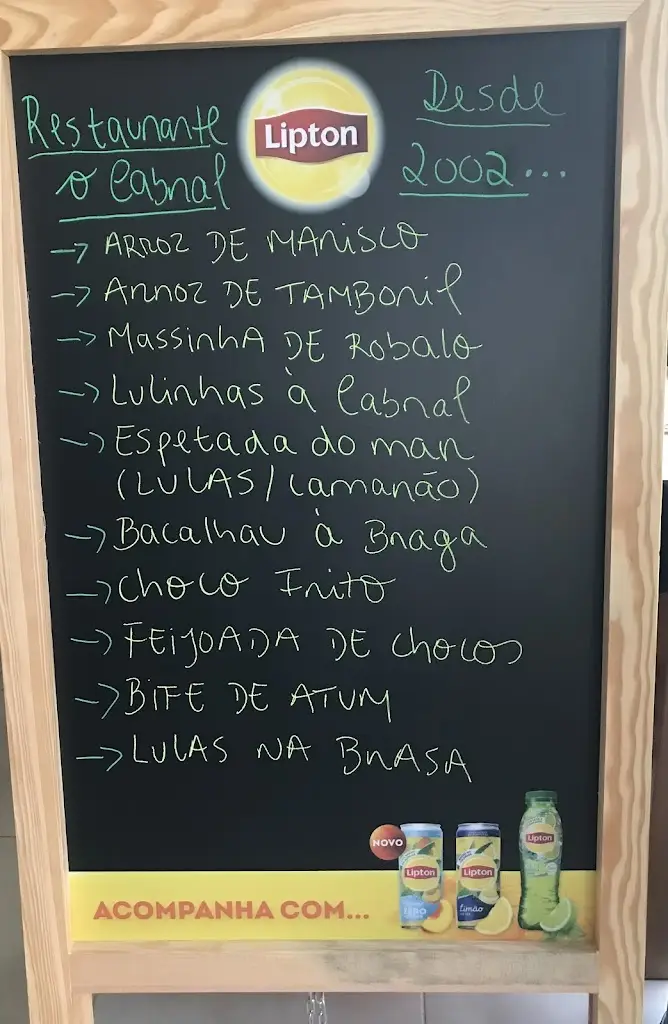 Restaurante
o Cabral
Lipton
Desde
2002...
→ ARROZ DE MARISCO
→ ARROZ DE TAMBORIL
→ Massinha DE Robalo
→ Lulinhas à Cabral
→ Espetada do mar
(LULAS/Camarão)
→ Bacalhau à Braga
→ CHOCO Frito
→ FEIJOADA DE CHOCOS
→ BIFE DE ATUM
→ LULAS NA BRASA
NOVO
Lipton
Lipton
Lipton
ZERO
Limão
ACOMPANHA COM...